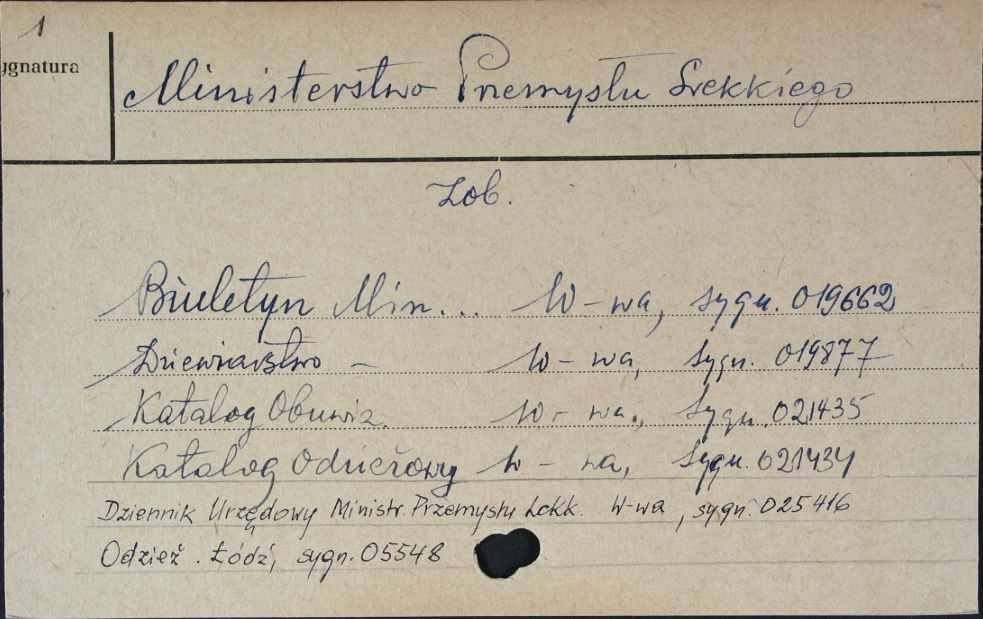 1
ygnatura
Ministerstwo Przemysłu Lekkiego
Zob.
Biuletyn Min... W-wa, sygn. 019662
Dziewiarstwo - W-wa, sygn. 019877
Katalog Obuwia. W-wa., sygn. 021435
Katalog Odzieżowy W-wa, sygn. 021434
Dziennik Urzędowy Ministr. Przemysłu Lekk. W-wa, sygn. 025416
Odzież. Łódź, sygn. 05548